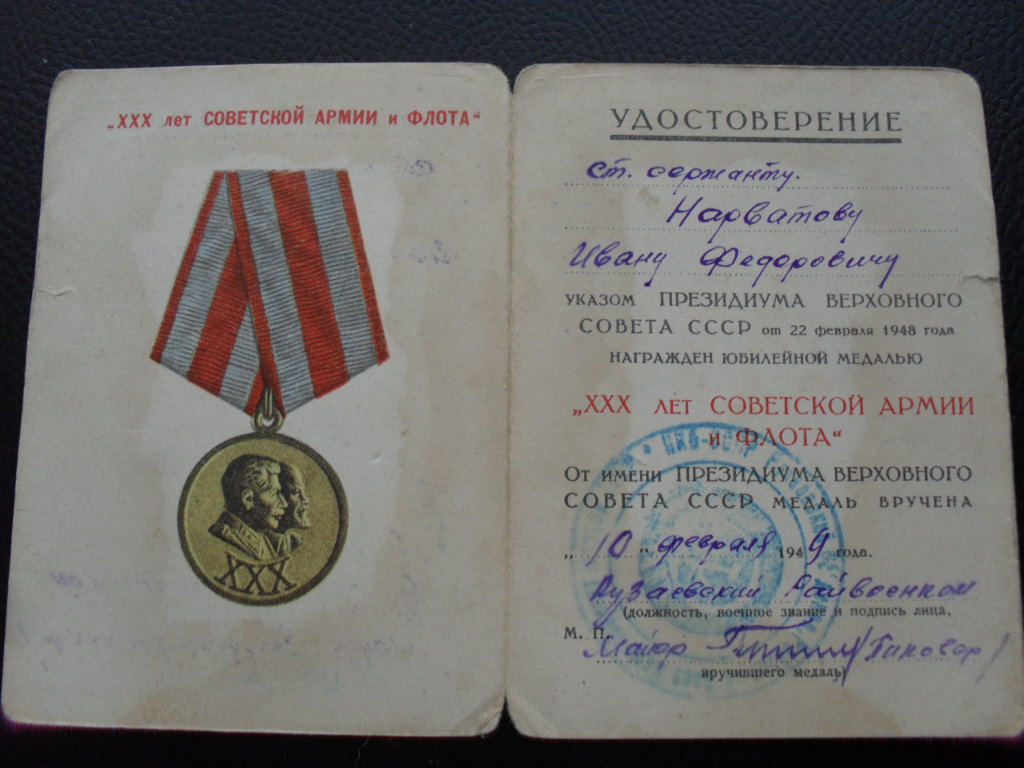 „XXX лет СОВЕТСКОЙ АРМИИ и ФЛОТА“
XXX
УДОСТОВЕРЕНИЕ
ст. сержанту.
Нарватову
Ивану Федоровичу
указом ПРЕЗИДИУМА ВЕРХОВНОГО
СОВЕТА СССР от 22 февраля 1948 года
НАГРАЖДЕН ЮБИЛЕЙНОЙ МЕДАЛЬЮ
„XXX лет СОВЕТСКОЙ АРМИИ
и ФЛОТА“
От имени ПРЕЗИДИУМА ВЕРХОВНОГО
СОВЕТА СССР МЕДАЛЬ ВРУЧЕНА
„10“ февраля 1949 года.
Рузаевский Райвоенком
(должность, военное звание и подпись лица,
М. П.
Майор
вручившего медаль)